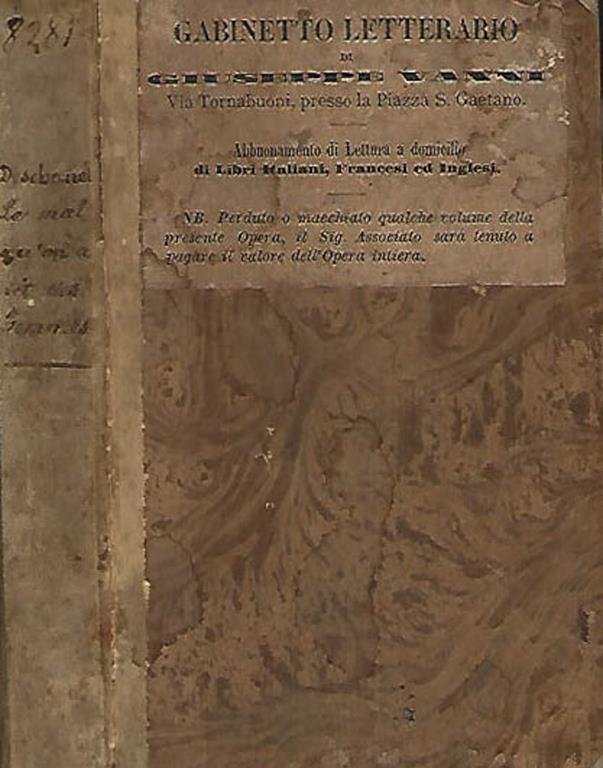 8281
Deschanel
Le mal
qu'on a
dit des
Femmes
GABINETTO LETTERARIO
DI
GIUSEPPE VANNI
Via Tornabuoni, presso la Piazza S. Gaetano.
Abbuonamento di Lettura a domicilio
di Libri Italiani, Francesi ed Inglesi.
NB. Perduto o macchiato qualche volume della
presente Opera, il Sig. Associato sarà tenuto a
pagare il valore dell'Opera intiera.